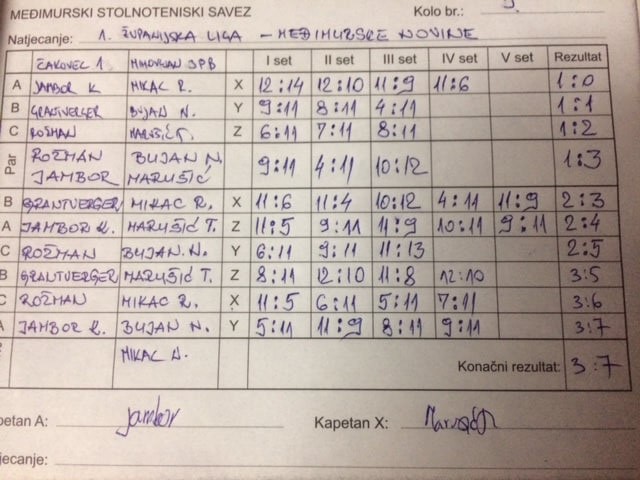 MEĐIMURSKI STOLNOTENISKI SAVEZ
Kolo br.: 9.
Natjecanje: 1. ŽUPANIJSKA LIGA - MEĐIMURSKE NOVINE
ČAKOVEC 1 SPB I set II set III set IV set V set Rezultat
A JAMBOR K. MIKAC R. X 12:14 12:10 11:9 11:6 1:0
B GRANTVERGER BUJAN N. Y 9:11 8:11 4:11 1:1
C ROŽMAN MARUŠIĆ T. Z 6:11 7:11 8:11 1:2
Par ROŽMAN BUJAN N. 9:11 4:11 10:12 1:3
JAMBOR MARUŠIĆ
B GRANTVERGER MIKAC R. X 11:6 11:4 10:12 4:11 11:9 2:3
A JAMBOR K. MARUŠIĆ T. Z 11:5 9:11 11:9 10:11 9:11 2:4
C ROŽMAN BUJAN. N. Y 6:11 9:11 11:13 2:5
B GRANTVERGER MARUŠIĆ T. Z 8:11 12:10 11:8 12:10 3:5
C ROŽMAN MIKAC R. X 11:5 6:11 5:11 7:11 3:6
A JAMBOR K. BUJAN N. Y 5:11 11:9 8:11 9:11 3:7
MIKAC N. Konačni rezultat: 3:7
petan A: Jambor Kapetan X:
jecanje: